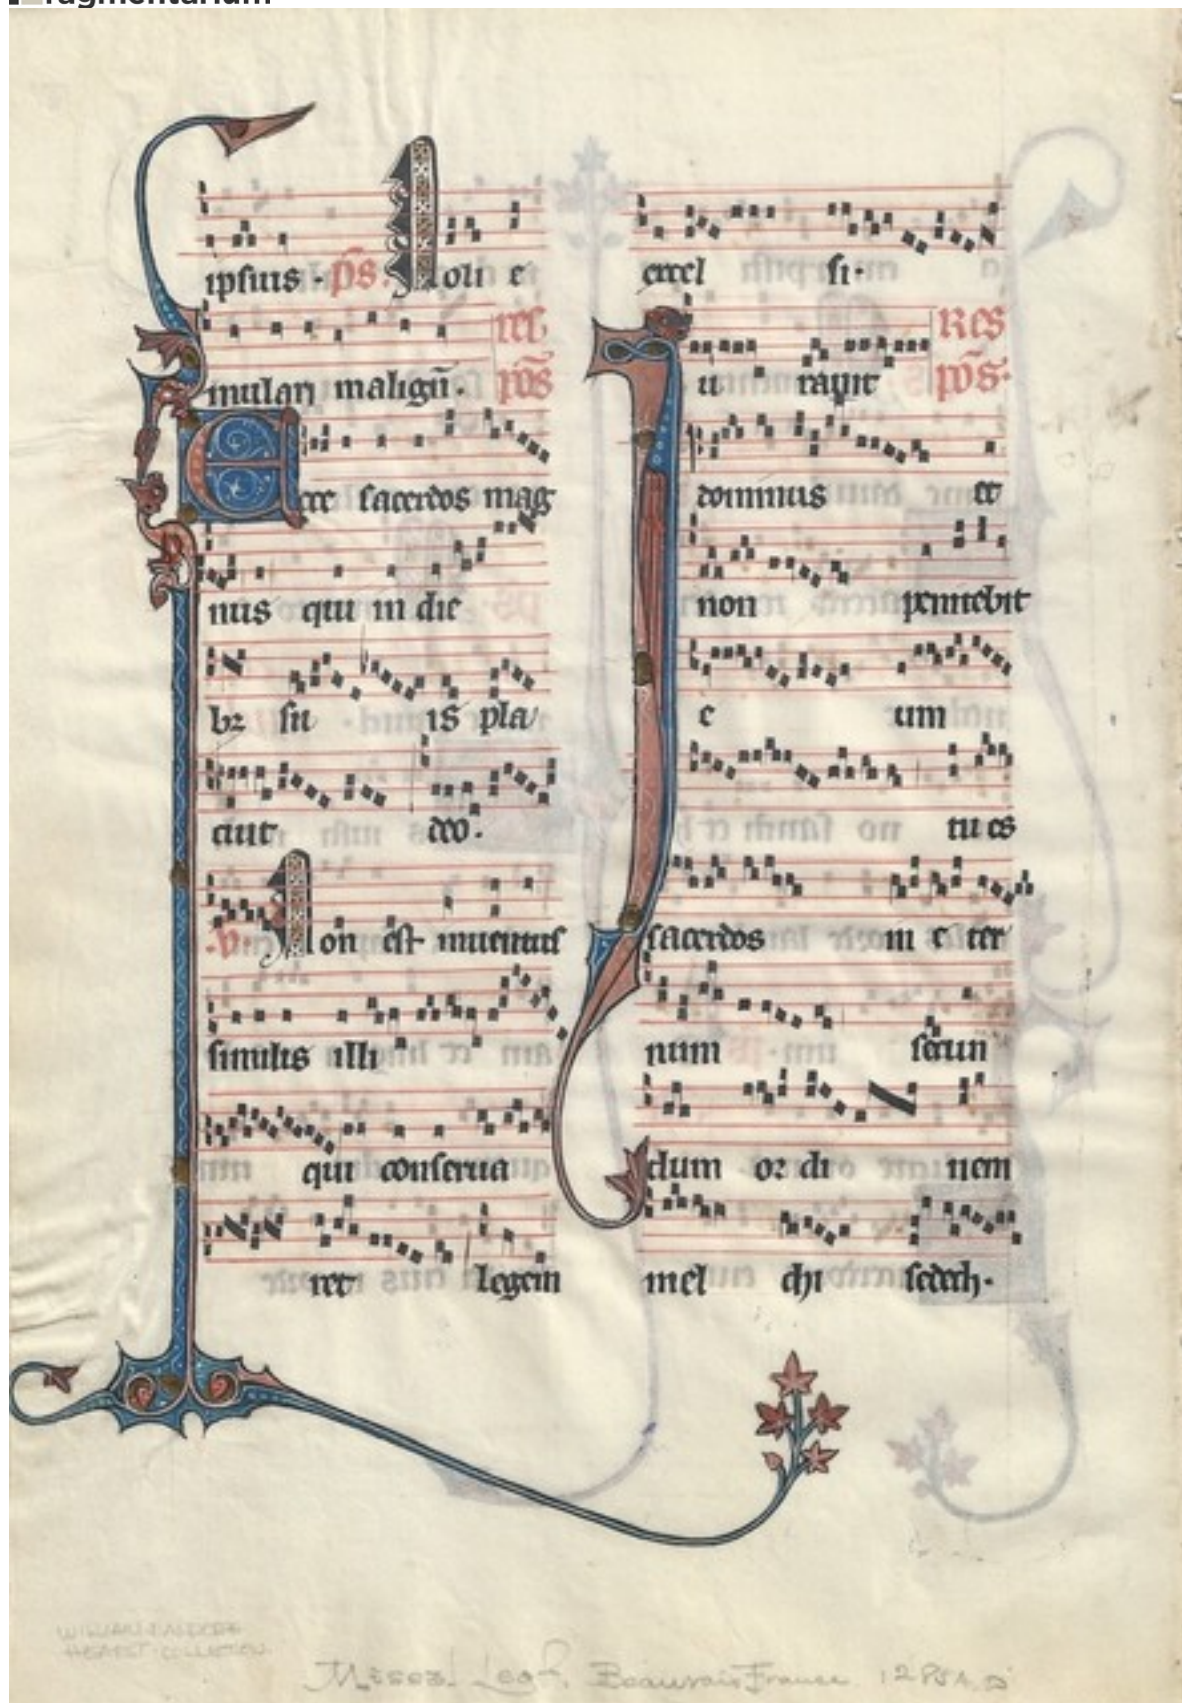 ragmentarium
ipsius · ps̄. Noli e
mulari maligū. res
pōs
Ecce sacerdos mag
nus qui in die
bꝫ su is pla
cuit deo.
.v. Non est inuentus
similis illi
qui conserua
ret legem
excel si.
Iu rauit Res
pōs.
dominus et
non penitebit
e um
tu es
sacerdos in e ter
num secun
dum or di nem
mel chi sedech.
WILLIAM RANDOLPH
HEARST COLLECTION
Missal Leaf, Beauvais France 1285 A.D